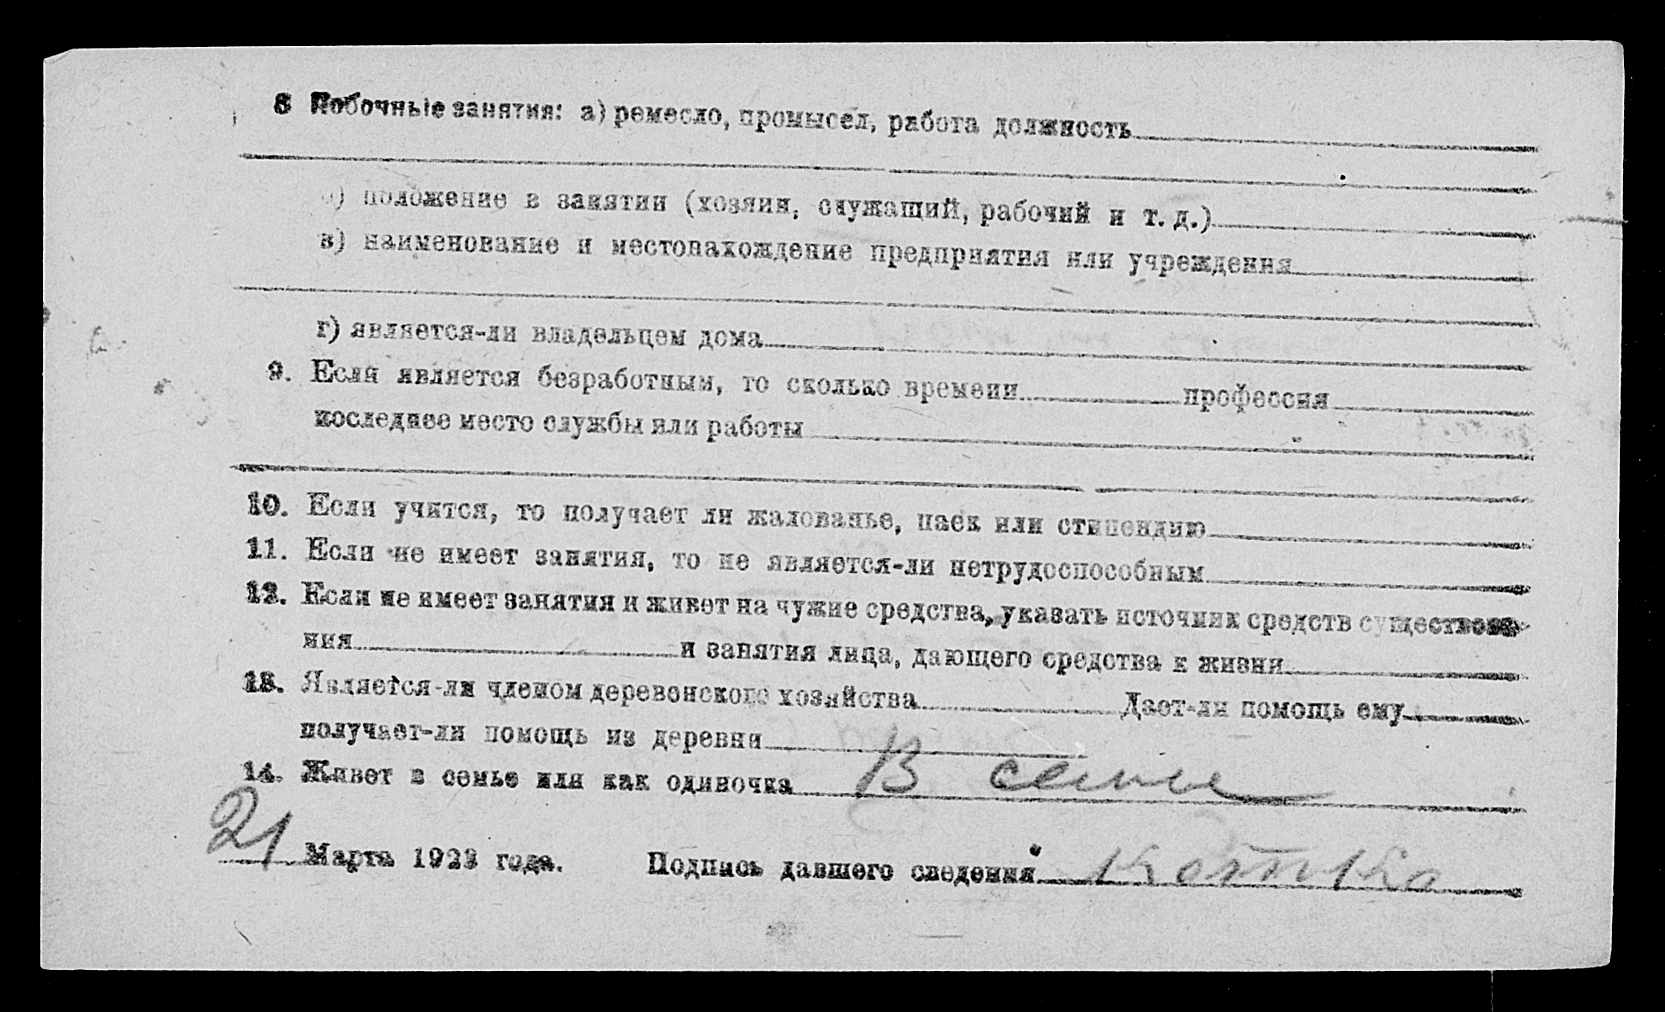 8 Побочные занятия: а) ремесло, промысел, работа должность
б) положение в занятии (хозяин, служащий, рабочий и т. д.)
в) наименование и местонахождение предприятия или учреждения
г) является-ли владельцем дома
9. Если является безработным, то сколько времени профессия
последнее место службы или работы
10. Если учится, то получает ли жалованье, паек или стипендию
11. Если не имеет занятия, то не является-ли нетрудоспособным
12. Если не имеет занятия и живет на чужие средства, указать источник средств существова
ния и занятия лица, дающего средства к жизни
13. Является-ли членом деревенского хозяйства Дает-ли помощь ему
получает-ли помощь из деревни
14. Живет в семье или как одиночка В семье
21 Марта 1923 года. Подпись давшего сведения